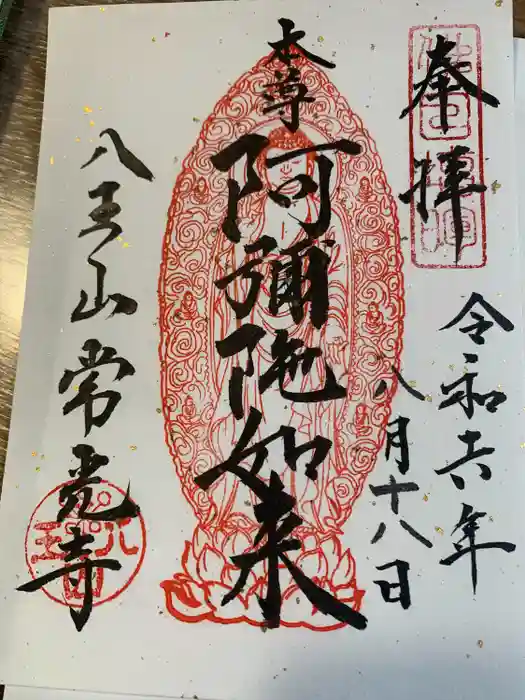 奉拝
令和六年
八月十八日
本尊
阿彌陀如来
八王山常光寺